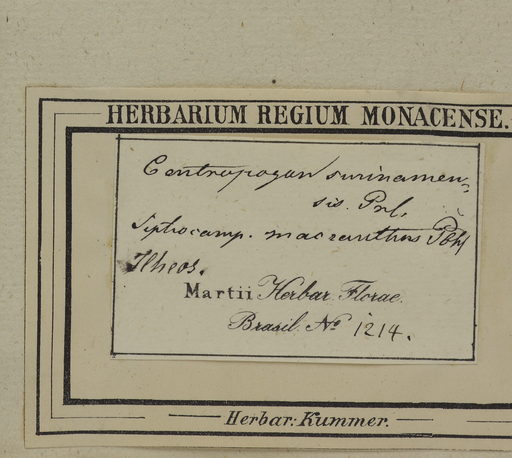 HERBARIUM REGIUM MONACENSE.
Centropogon surinamen-
sis. Prl.
Siphocamp. macranthus Pohl
Ilheos.
Martii Herbar. Florae
Brasil. No 1214.
Herbar: Kummer.